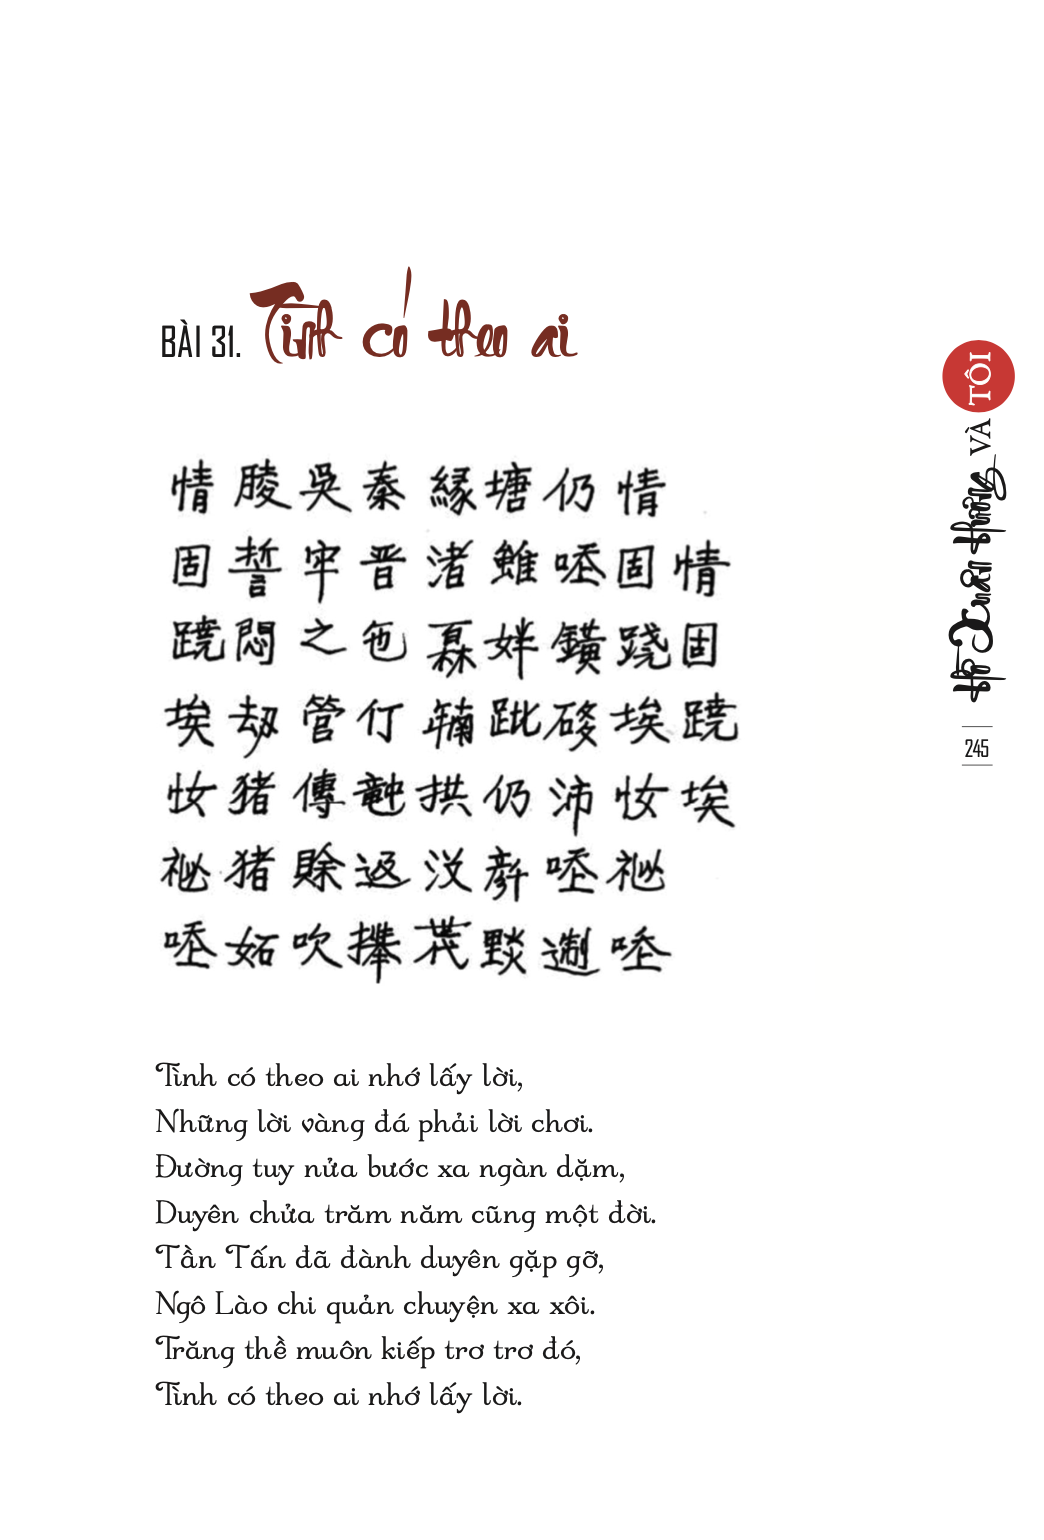 BÀI 31. Tình có theo ai
情固蹺埃
情固蹺埃祕
仍鐄沛
塘雖姅
緣渚拱沒
秦晉㐌仃返
吳牢之管傳賒吹
誓悶劫猪猪妬
情固蹺埃祕
Tình có theo ai nhớ lấy lời,
Những lời vàng đá phải lời chơi.
Đường tuy nửa bước xa ngàn dặm,
Duyên chửa trăm năm cũng một đời.
Tần Tấn đã đành duyên gặp gỡ,
Ngô Lào chi quản chuyện xa xôi.
Trăng thề muôn kiếp trơ trơ đó,
Tình có theo ai nhớ lấy lời.
Hồ Xuân Hương VÀ TÔI
245